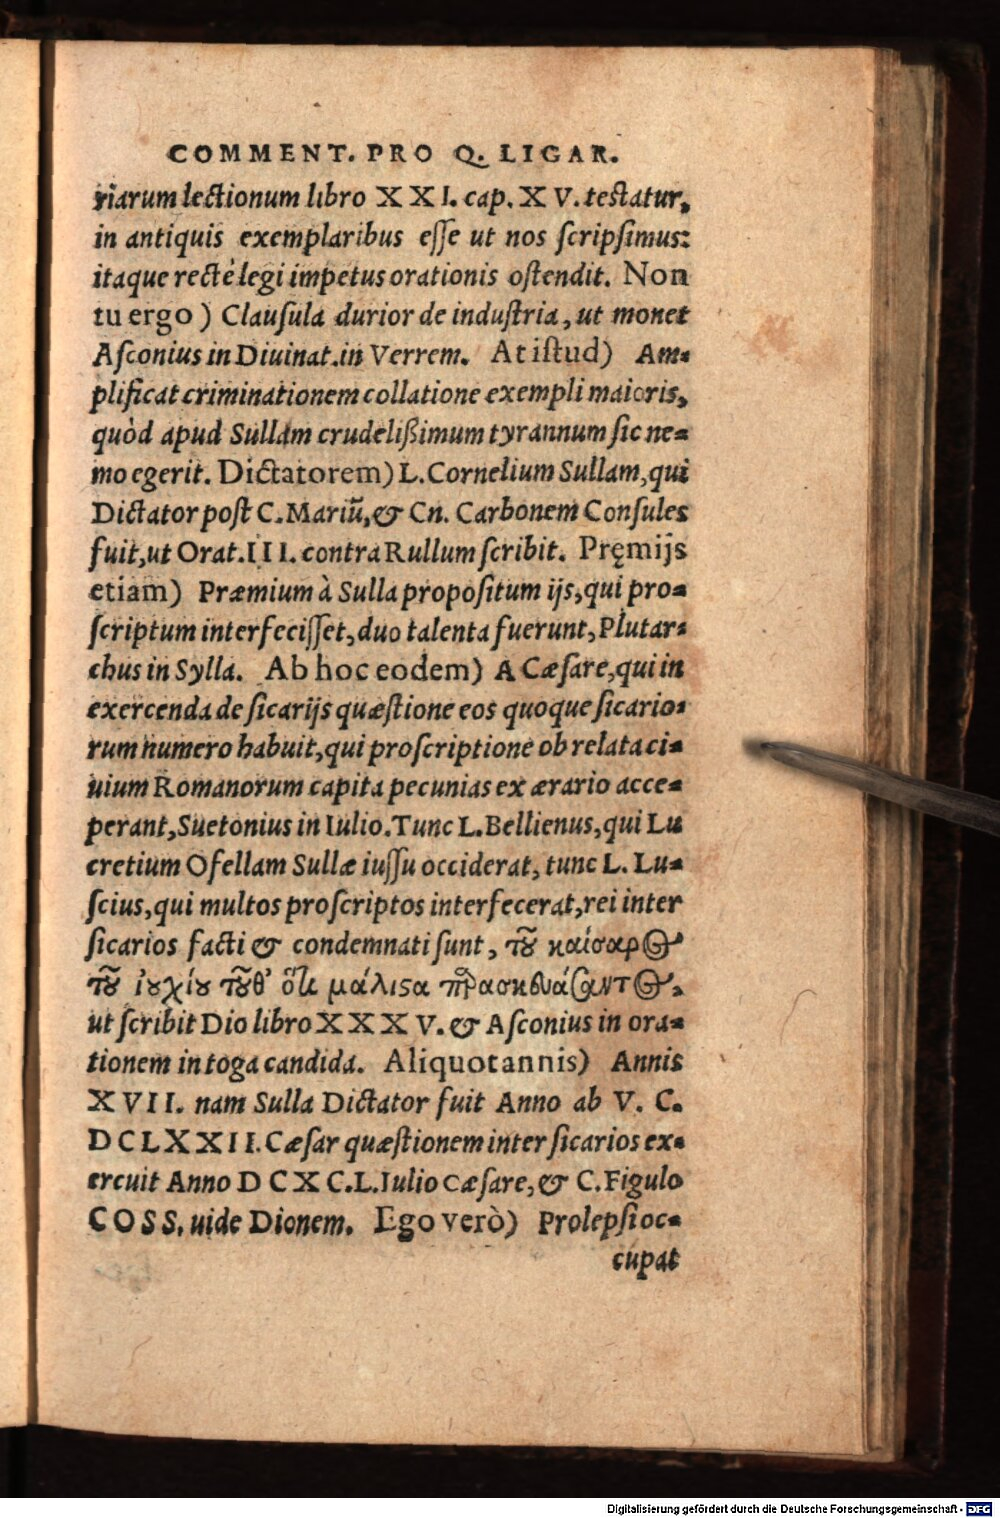 COMMENT. PRO Q. LIGAR.
riarum lectionum libro XXI. cap. XV. testatur,
in antiquis exemplaribus esse ut nos scripsimus:
itaque rectè legi impetus orationis ostendit. Non
tu ergo) Clausula durior de industria, ut monet
Asconius in Diuinat. in Verrem. At istud) Am-
plificat criminationem collatione exempli maioris,
quòd apud Sullam crudelißimum tyrannum sic ne-
mo egerit. Dictatorem) L. Cornelium Sullam, qui
Dictator post C. Mariũ, & Cn. Carbonem Consules
fuit, ut Orat. III. contra Rullum scribit. Pręmijs
etiam) Præmium à Sulla propositum ijs, qui pro-
scriptum interfecisset, duo talenta fuerunt, Plutar-
chus in Sylla. Ab hoc eodem) A Cæsare, qui in
exercenda de sicarijs quæstione eos quoque sicario-
rum numero habuit, qui proscriptione ob relata ci-
uium Romanorum capita pecunias ex ærario acce-
perant, Suetonius in Iulio. Tunc L. Bellienus, qui Lu
cretium Ofellam Sullæ iussu occiderat, tunc L. Lu-
scius, qui multos proscriptos interfecerat, rei inter
sicarios facti & condemnati sunt, τοῦ καίσαρος
τοῦ ἰουλίου τοῦθ' ὅτι μάλιστα παρασκευάσαντος,
ut scribit Dio libro XXXV. & Asconius in ora-
tionem in toga candida. Aliquot annis) Annis
XVII. nam Sulla Dictator fuit Anno ab V. C.
DCLXXII. Cæsar quæstionem inter sicarios ex-
ercuit Anno DCXC. L. Iulio Cæsare, & C. Figulo
COSS. uide Dionem. Ego verò) Prolepsi oc-
cupat
Digitalisierung gefördert durch die Deutsche Forschungsgemeinschaft - DFG